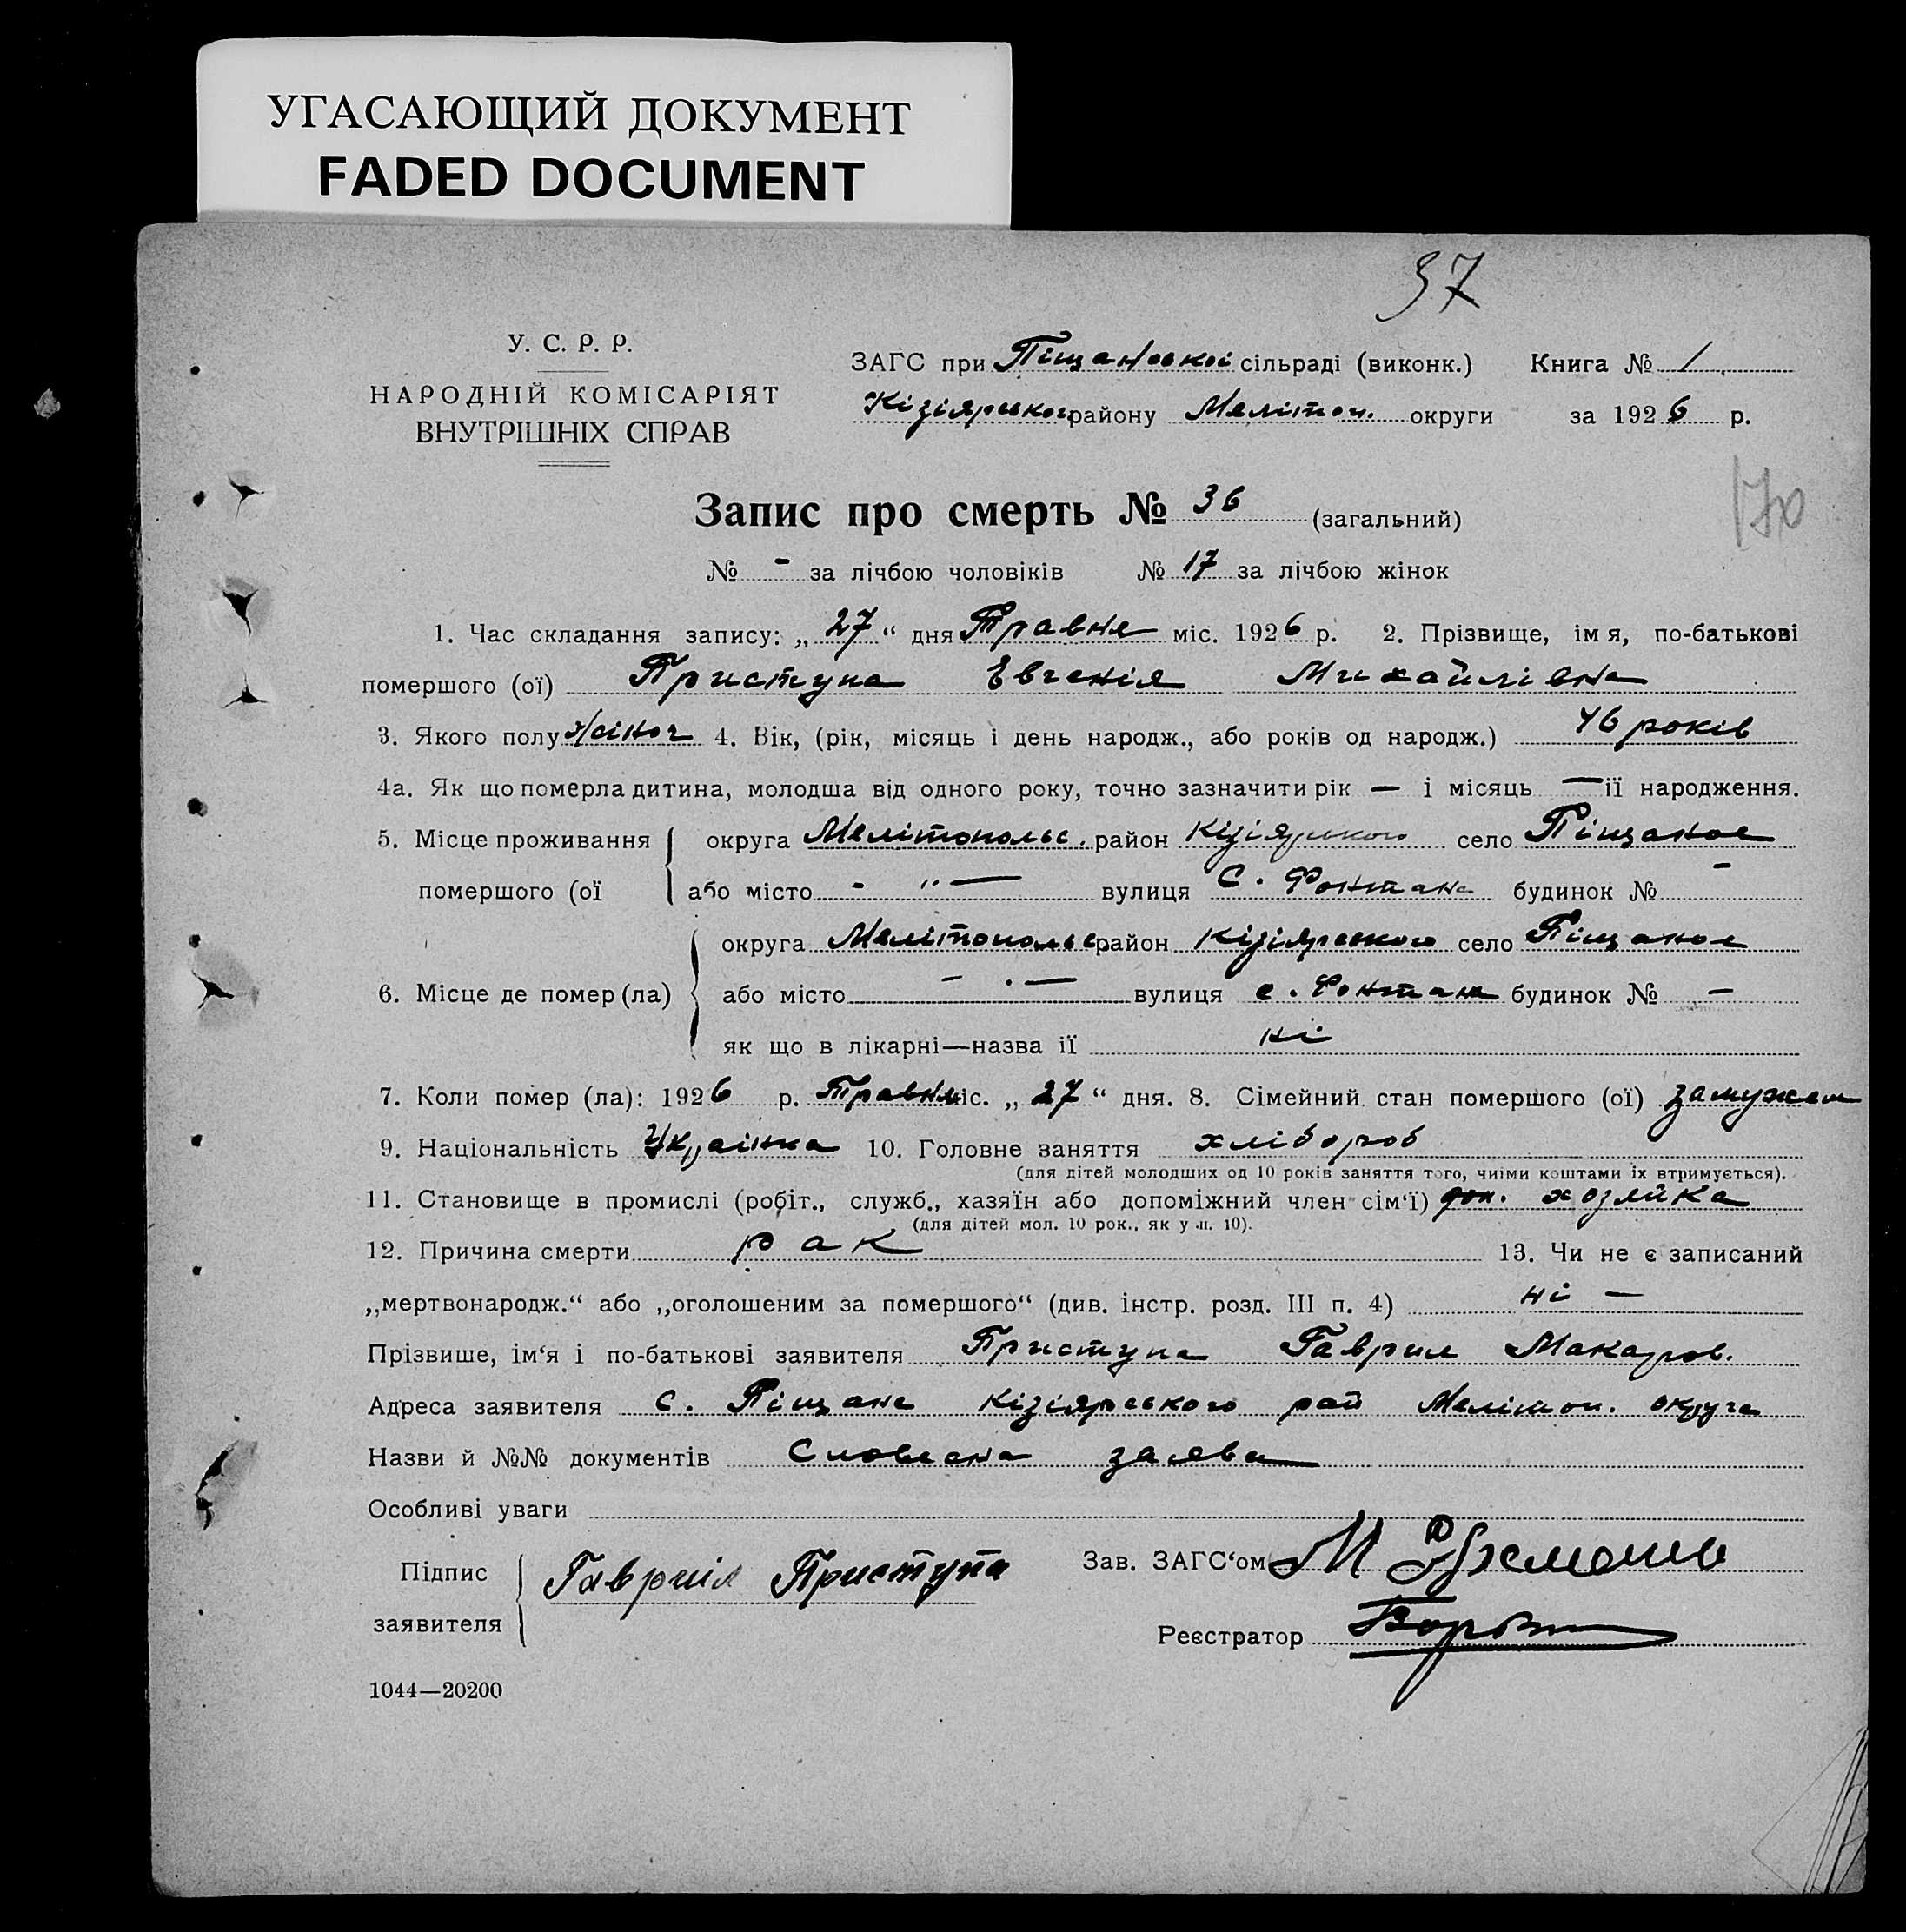 УГАСАЮЩИЙ ДОКУМЕНТ
FADED DOCUMENT
37
У. С. Р. Р.
НАРОДНІЙ КОМІСАРІЯТ
ВНУТРІШНІХ СПРАВ
ЗАГС при Піщановскої сільраді (виконк.) Книга № 1
Кізіярського району Меліточ. округи за 1926 р.
170
Запис про смерть № 36 (загальний)
№ - за лічбою чоловіків № 17 за лічбою жінок
1. Час складання запису: „27“ дня Травня міс. 1926 р. 2. Прізвище, імя, по-батькові
помершого (ої) Приступа Евгенія Михайлівна
3. Якого полу жіноч 4. Вік, (рік, місяць і день народж., або років од народж.) 46 років
4а. Як що померла дитина, молодша від одного року, точно зазначити рік — і місяць — її народження.
5. Місце проживання округа Мелітопольс. район Кізіярського село Піщаное
помершого (ої або місто - „ — вулиця С. Фонтана будинок № -
округа Мелітопольс район Кізіярського село Піщаное
6. Місце де помер (ла) або місто - . — вулиця с. Фонтана будинок № —
як що в лікарні—назва її ні
7. Коли помер (ла): 1926 р. Травня міс. „27“ дня. 8. Сімейний стан помершого (ої) замужем
9. Національність Українка 10. Головне заняття хлібороб
(для дітей молодших од 10 років заняття того, чиїми коштами їх втримується).
11. Становище в промислі (робіт., служб., хазяїн або допоміжний член сім‘ї) дом. хозяйка
(для дітей мол. 10 рок., як у п. 10).
12. Причина смерти рак 13. Чи не є записаний
„мертвонародж.“ або „оголошеним за помершого“ (див. інстр. розд. III п. 4) ні —
Прізвише, ім‘я і по-батькові заявителя Приступа Гаврил Макаров.
Адреса заявителя с. Піщане Кізіярського рай Мелітоп. округа
Назви й №№ документів Словесна заява
Особливі уваги
Підпис Гавриіл Приступа Зав. ЗАГС‘ом М
заявителя
Реєстратор
1044—20200